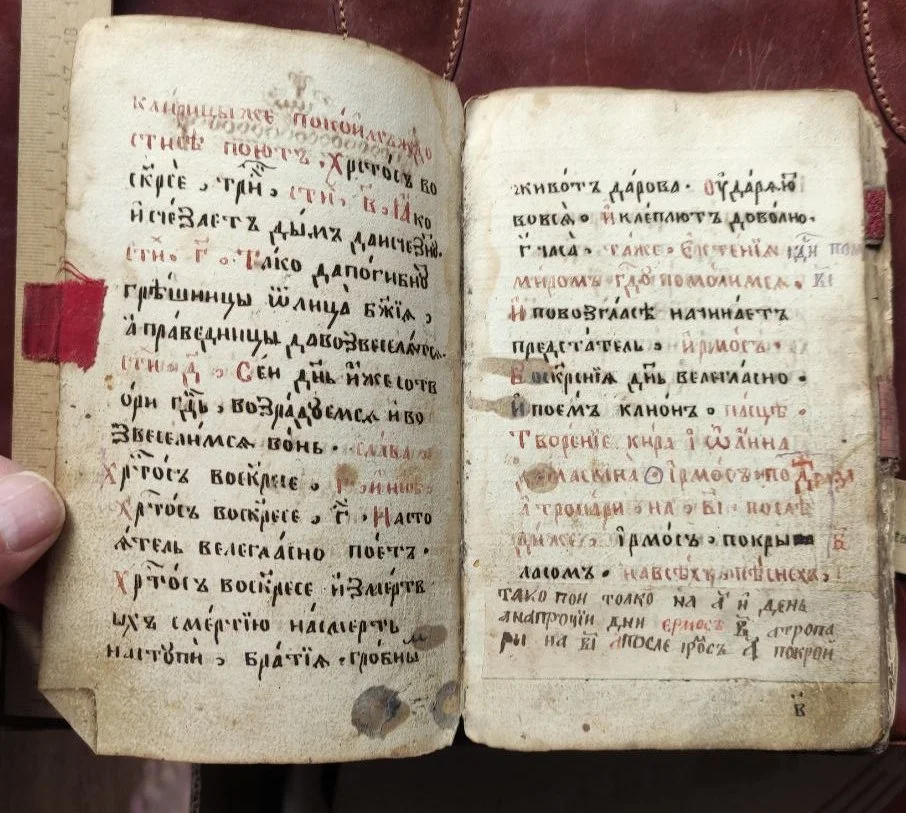 клирицы же по коимъждо
стисѣ поютъ. Хрⷭ҇то́съ во
скрⷭ҇се , три̑ , сти̑ . в҃ . Ꙗ҆ко
и҆счеза́етъ ды́мъ да и҆счезну.
сти̑ . г҃ . Тако да поги́бну
грѣ́шницы ѿ лица̀ бж҃їѧ ,
а҆ пра́ведницы да возвеселѧтсѧ.
сти̑ . д҃ . Се́й дн҃ь и҆́же сотв
орѝ гдⷭ҇ь , возра́дуемсѧ и҆ во
звесели́мсѧ во́нь . сла́ва
Хрⷭ҇то́съ воскрⷭ҇есе , и҆ ны́нѣ
Хрⷭ҇то́съ воскре́се , г҃ . Насто
ѧ́тель велегла́сно пое́тъ .
Хрⷭ҇то́съ воскре́се и҆з ме́ртв
ыхъ сме́ртїю на сме́рть
наступѝ , бра́тїѧ . гробны м
живо́тъ да́рова . Оу҆дарѧю
во всѧ̀ . И҆ клеплютъ дово́лно .
г҃ часа̀ . та́же . Е҆ктенїѧ
ми́ромъ гдⷭ҇у помо́лимсѧ . в҃і
И҆ по во́згласѣ начина́етъ
предста́тель . и҆рмо́съ .
Воскрⷭ҇нїѧ дн҃ь велегла́сно .
И҆ пое́мъ кано́нъ . па́сцѣ .
Творе́нїе ки́ра і҆ѡа́нна
дамаски́на і҆рмо́съ . по д҃
а҆ тропарѝ . на . в҃і . послѣ
ди́же . і҆рмо́съ . покры
ласомъ . на всѣ́хъ пѣ́снехъ .
тако пои толко на а҃ и день
а на прочїи дни ермосъ в҃ а тропа
ры на в҃і а после ірмосъ а҃ покрои
в҃